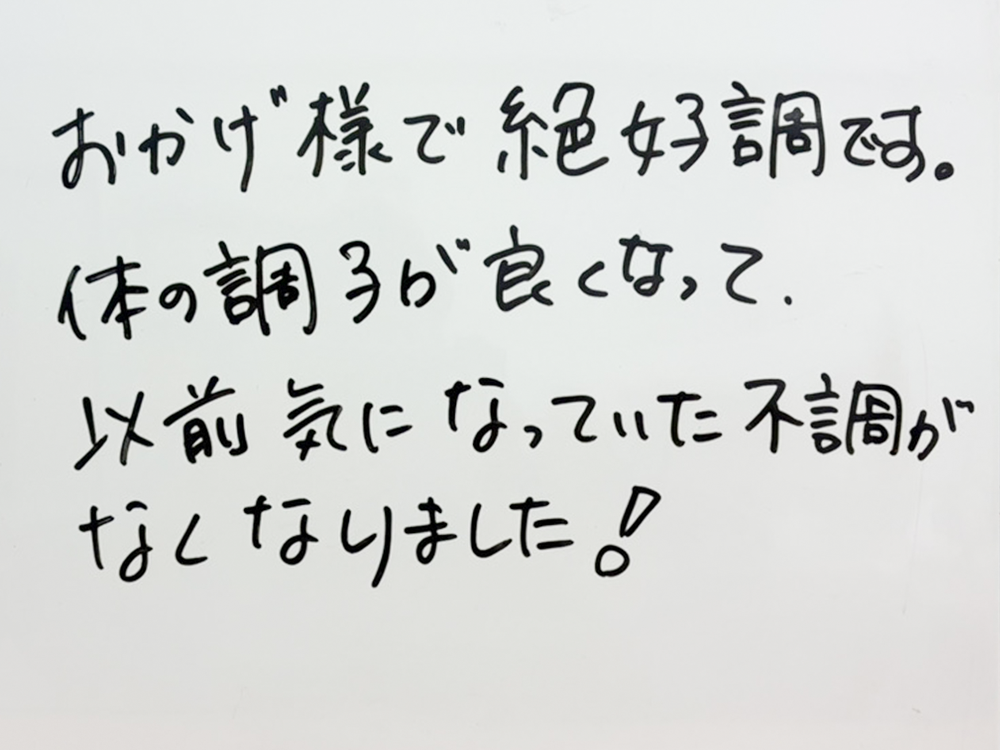 おかげ様で絶好調です。
体の調子が良くなって、
以前気になっていた不調が
なくなりました！